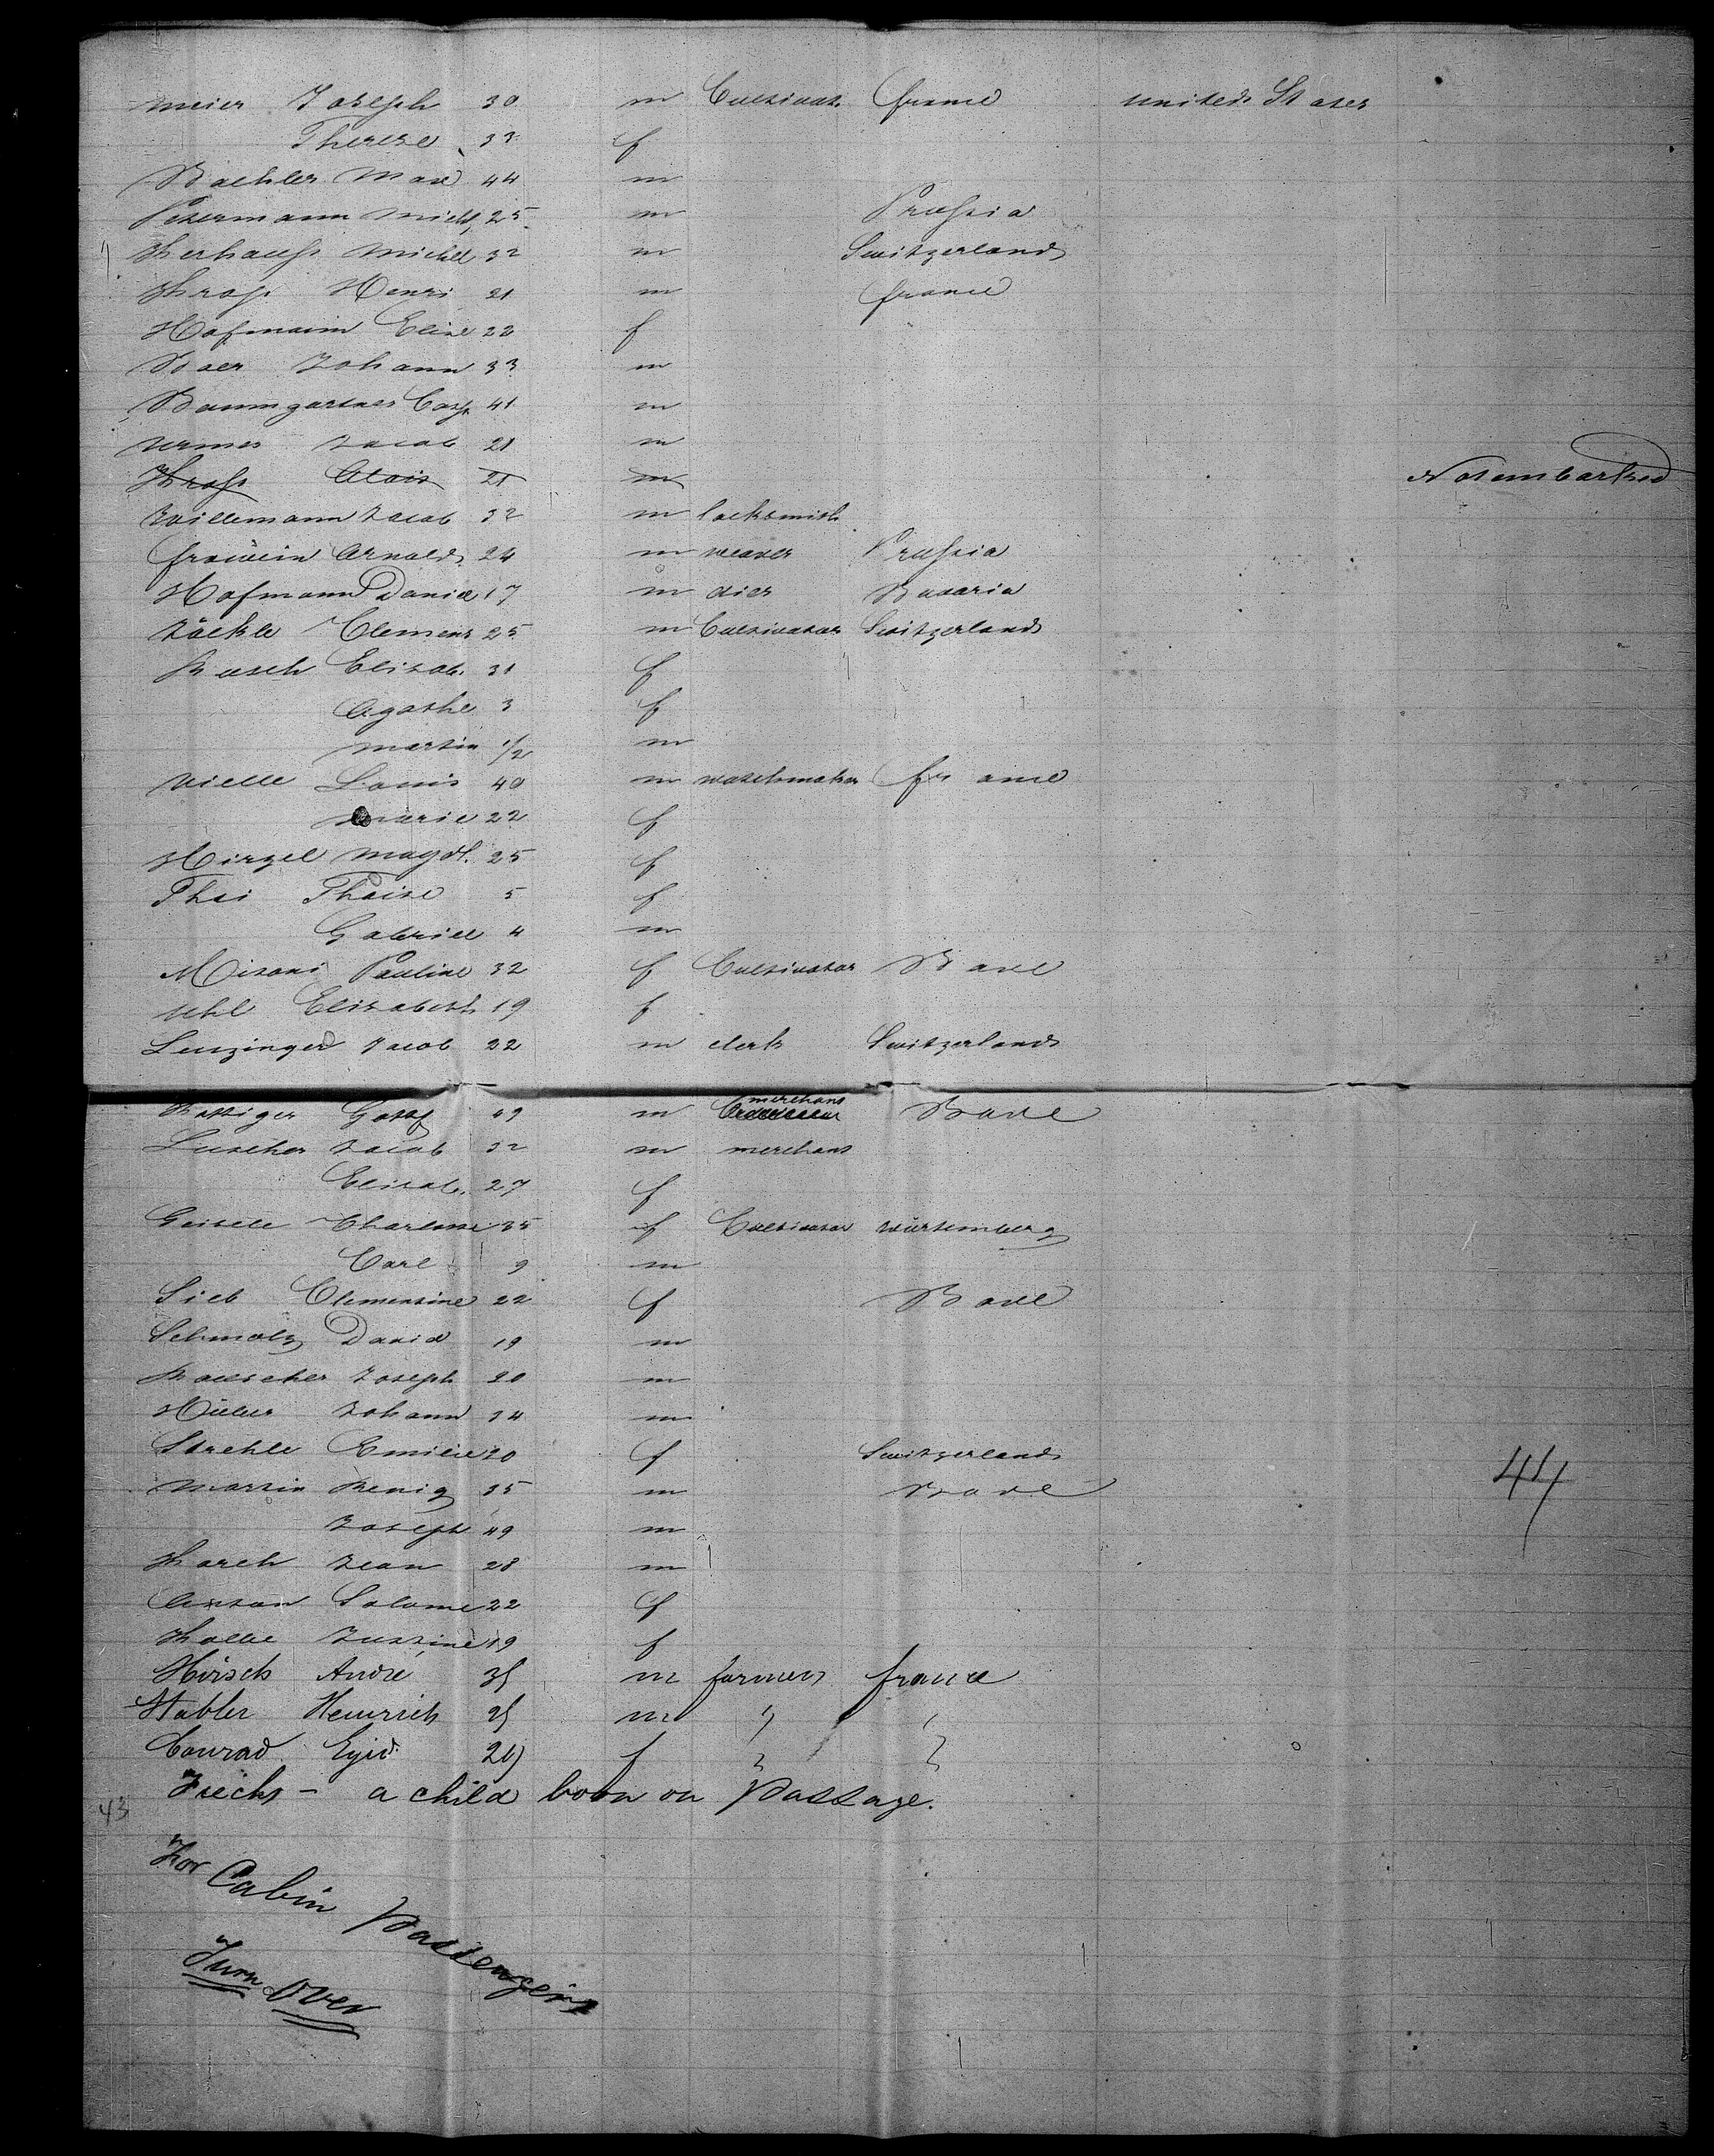 Meier Joseph 30 m Cultivat. france united States
Therese 33 f
Baehler Max 44 m
Petermann Mich. 25 m Prussia
Kerhauss Michel 32 m Switzerland
Kross Henri 21 m france
Hofmann Elise 22 f
Baer Johann 33 m
Baumgartner Casp. 41 m
Jacob 21 m
Kross Alois 21 m Not embarked
Willemann Jacob 32 m locksmith
frowein Arnold 24 m weaver Prussia
Hofmann Daniel 17 m dier Bavaria
Jäckle Clemens 25 m Cultivator Switzerland
Busch Elisab. 31 f
Agathe 3 f
Martin 1/2 m
Vielle Louis 40 m watchmaker france
Marie 22 f
Hirzel Magdl. 25 f
Thaise 5 f
Gabriel 4 m
Misani Pauline 32 f Cultivator Bade
Uhl Elisabeth 19 f
Leuzinger Jacob 22 m clerk Switzerland
49 m merchant Bade
Luscher Jacob 32 m merchant
Elisab. 27 f
Geisele Charlotte 35 f Cultivator Würtemberg
Carl 9 m
Sieb Clementine 22 f Bade
Schmolz David 19 m
Rauscher Joseph 20 m
Johann 34 m
Strehle Emilie 20 f Switzerland
Martin 35 m Bade 44
Joseph 49 m
Jean 28 m
Anton Salome 22 f
Kolbe Justine 19 f
Hirsch André 35 m farmer france
Stabler Heinrich 25 m " "
Conrad Egid. 29 f " "
a child born on Passage.
43
For Cabin Passengers
Turn Over